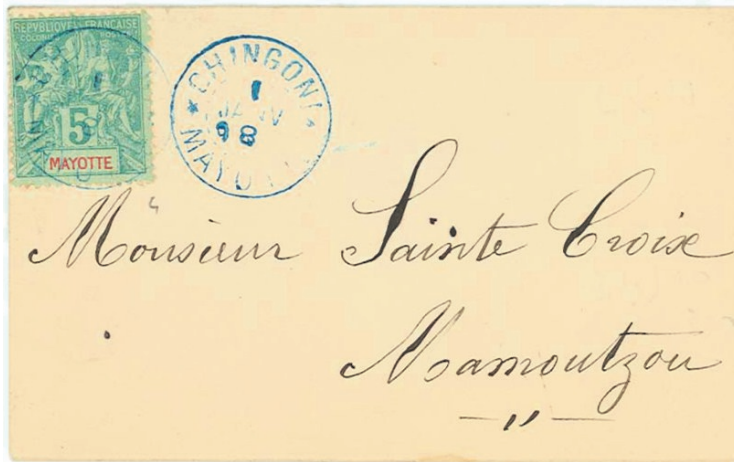 REPVBLIQVE FRANÇAISE
COLONIES POSTES
5
MAYOTTE
CHINGONI
1
JANV
98
MAYOTTE
Monsieur Sainte Croix
Mamoutzou